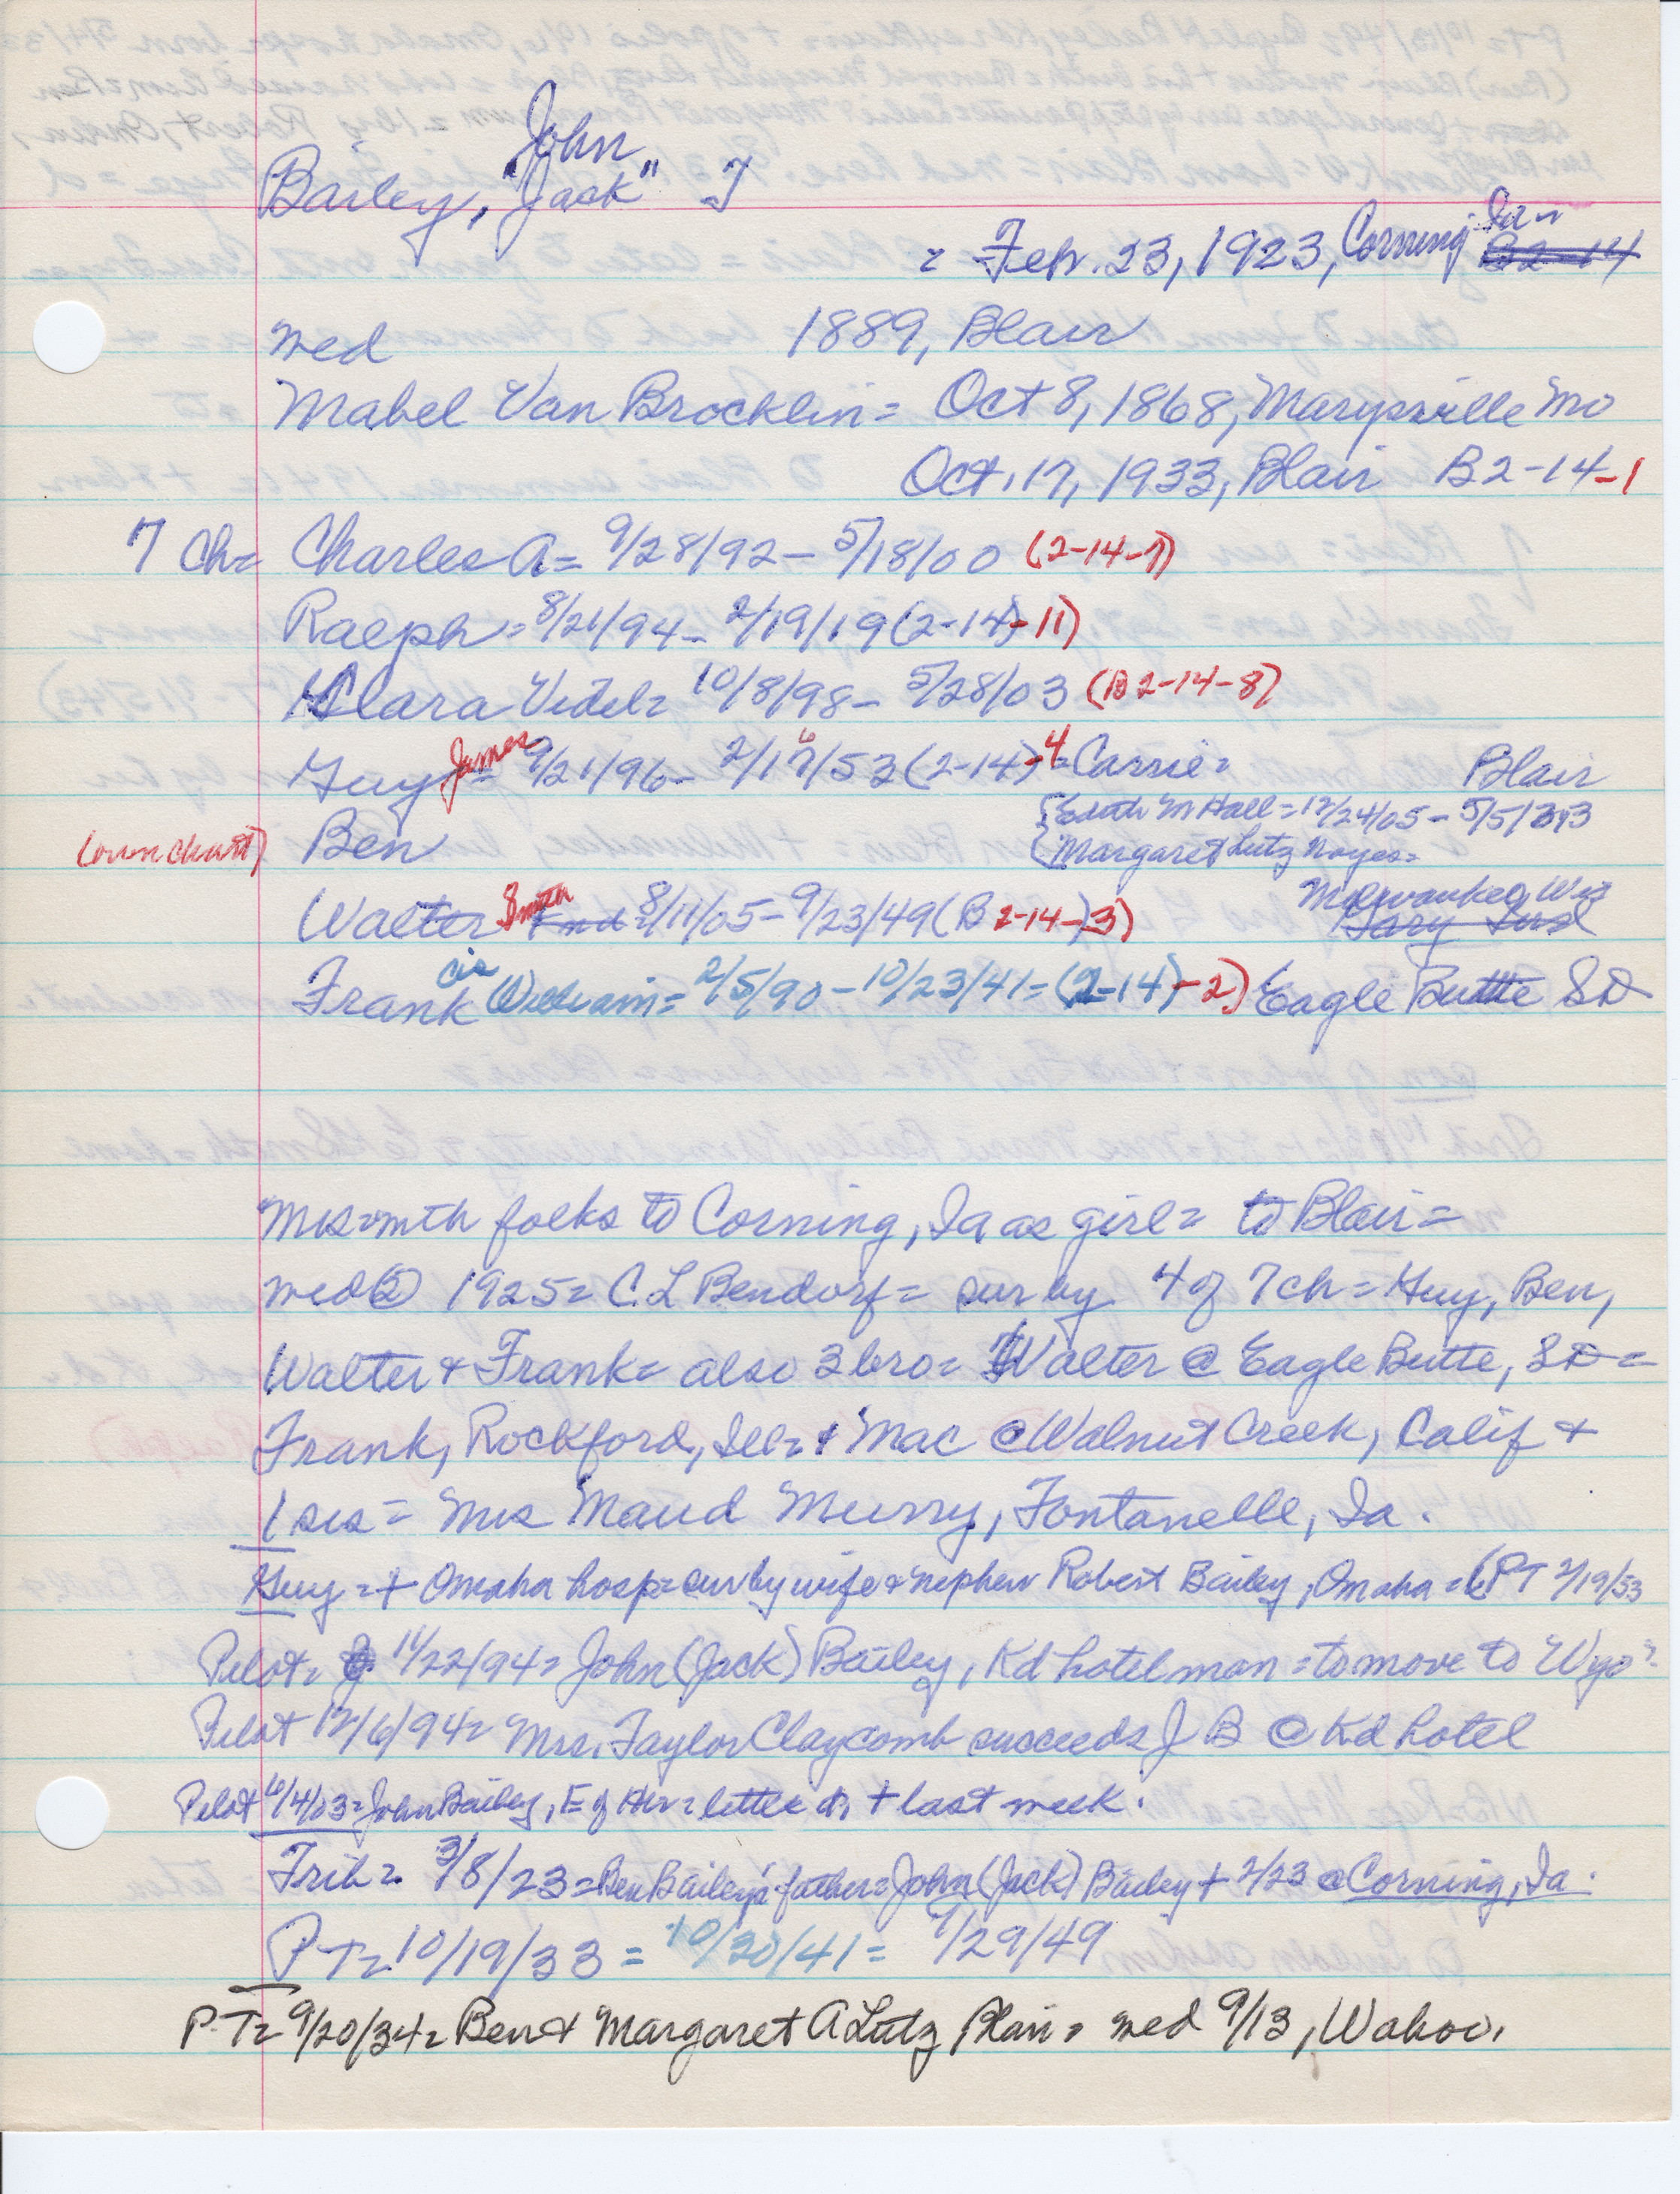 John
Bailey, "Jack" T
= Feb. 23, 1923, Corning Ia
B2-14
med 1889, Blair
Mabel Van Brocklin = Oct 8, 1868, Marysville Mo
Oct. 17, 1933, Blair B2-14-1
7 Ch = Charles A = 9/28/92 - 5/18/00 (2-14-7)
Ralph = 8/21/94 - 2/19/19 (2-14)-11)
Clara Videl = 10/8/98 - 5/28/03 (B2-14-8)
Guy James = 9/21/96 - 2/17/53 (2-14)-4 = Carrie = Blair
{Edith M Hall = 12/24/05 - 5/5/
(own chart) Ben {Margaret Lutz Noyes =
Walter Smith 8/11/05 - 9/23/49 (B 2-14-)3) Milwaukee, Wis
Gary Ind
Frank William = 2/5/90 - 10/23/41 = (2-14)-2) Eagle Butte SD
Mrs = mth folks to Corning, Ia as girl = to Blair =
med ② 1925 = C. L Bendorf = sur by 4 of 7 ch = Guy, Ben,
Walter & Frank = also 3 bro = Walter @ Eagle Butte, SD =
Frank, Rockford, Ill = & Mac @ Walnut Creek, Calif +
1 sis = Mrs Maud Murry, Fontanelle, Ia.
Guy = + Omaha hosp = sur by wife & nephew Robert Bailey, Omaha = (PT 2/19/53
Pilot = 11/22/94 = John (Jack) Bailey, Kd hotel man = to move to Wyo =
Pilot 12/6/94 = Mrs. Taylor Claycomb succeeds J B @ Kd hotel
Pilot 6/4/03 = John Bailey, E of Her = little d, + last week.
Trib = 3/8/23 = Ben Bailey's father = John (Jack) Bailey + 2/23 @ Corning, Ia.
P-T = 10/19/33 = 10/30/41 = 9/29/49
P-T = 9/20/34 = Ben & Margaret A Lutz, Blair = med 9/13, Wahoo.